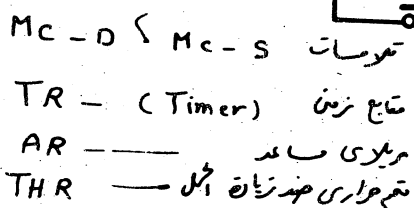 Mc - D , Mc - S تلامسات
TR - (Timer) متابع زمني
AR — ريلاي مساعد
THR — متمم حراري ضد زيادة الحمل